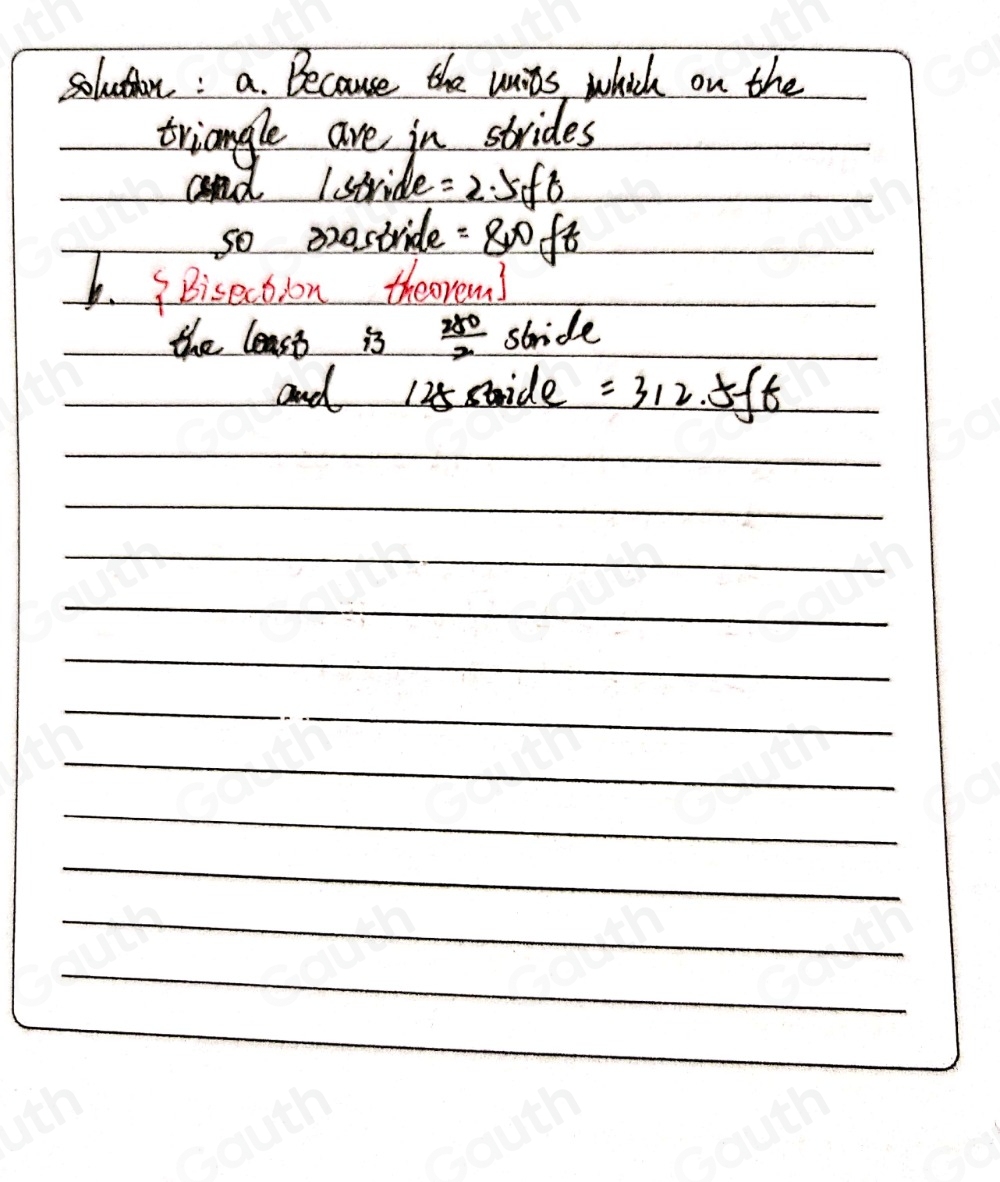 solution : a. Because the units which on the
triangle are in strides
and 1 stride = 2.5ft
so 320 stride = 800 ft
b. {Bisection theorem}
the least is 250/2 stride
and 125 stride = 312.5ft